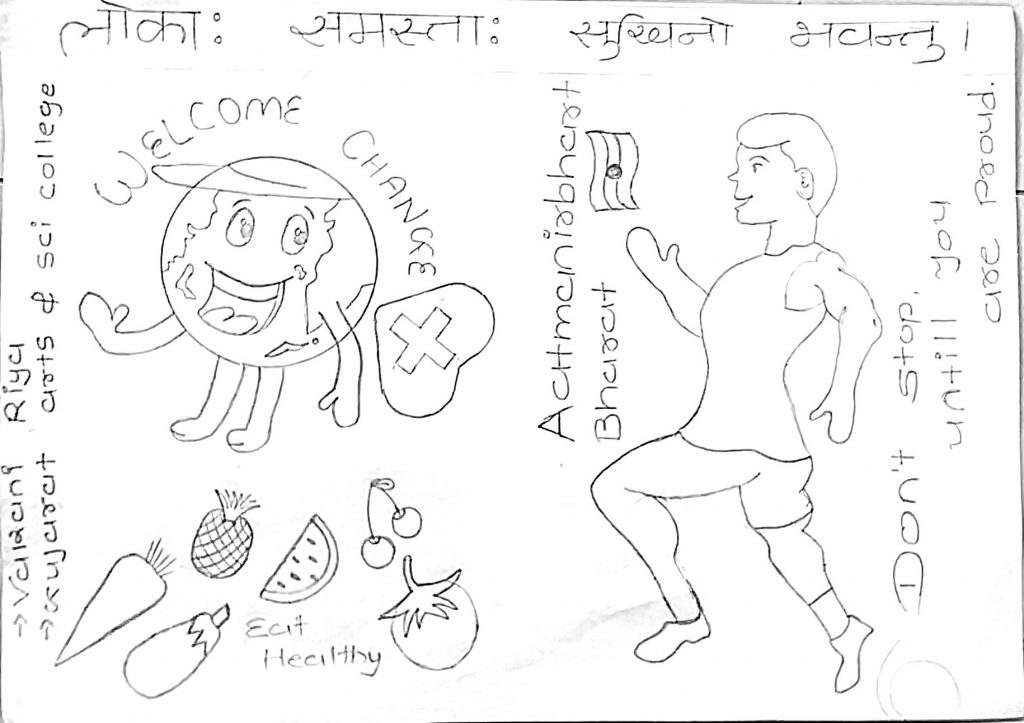 लोकाः समस्ताः सुखिनो भवन्तु।
WELCOME CHANGE
Aatmanirbharat
Bharat
Don't stop,
untill you
are proud.
Eat
Healthy
→ Valaani Riya
→ Gujarat arts & sci college